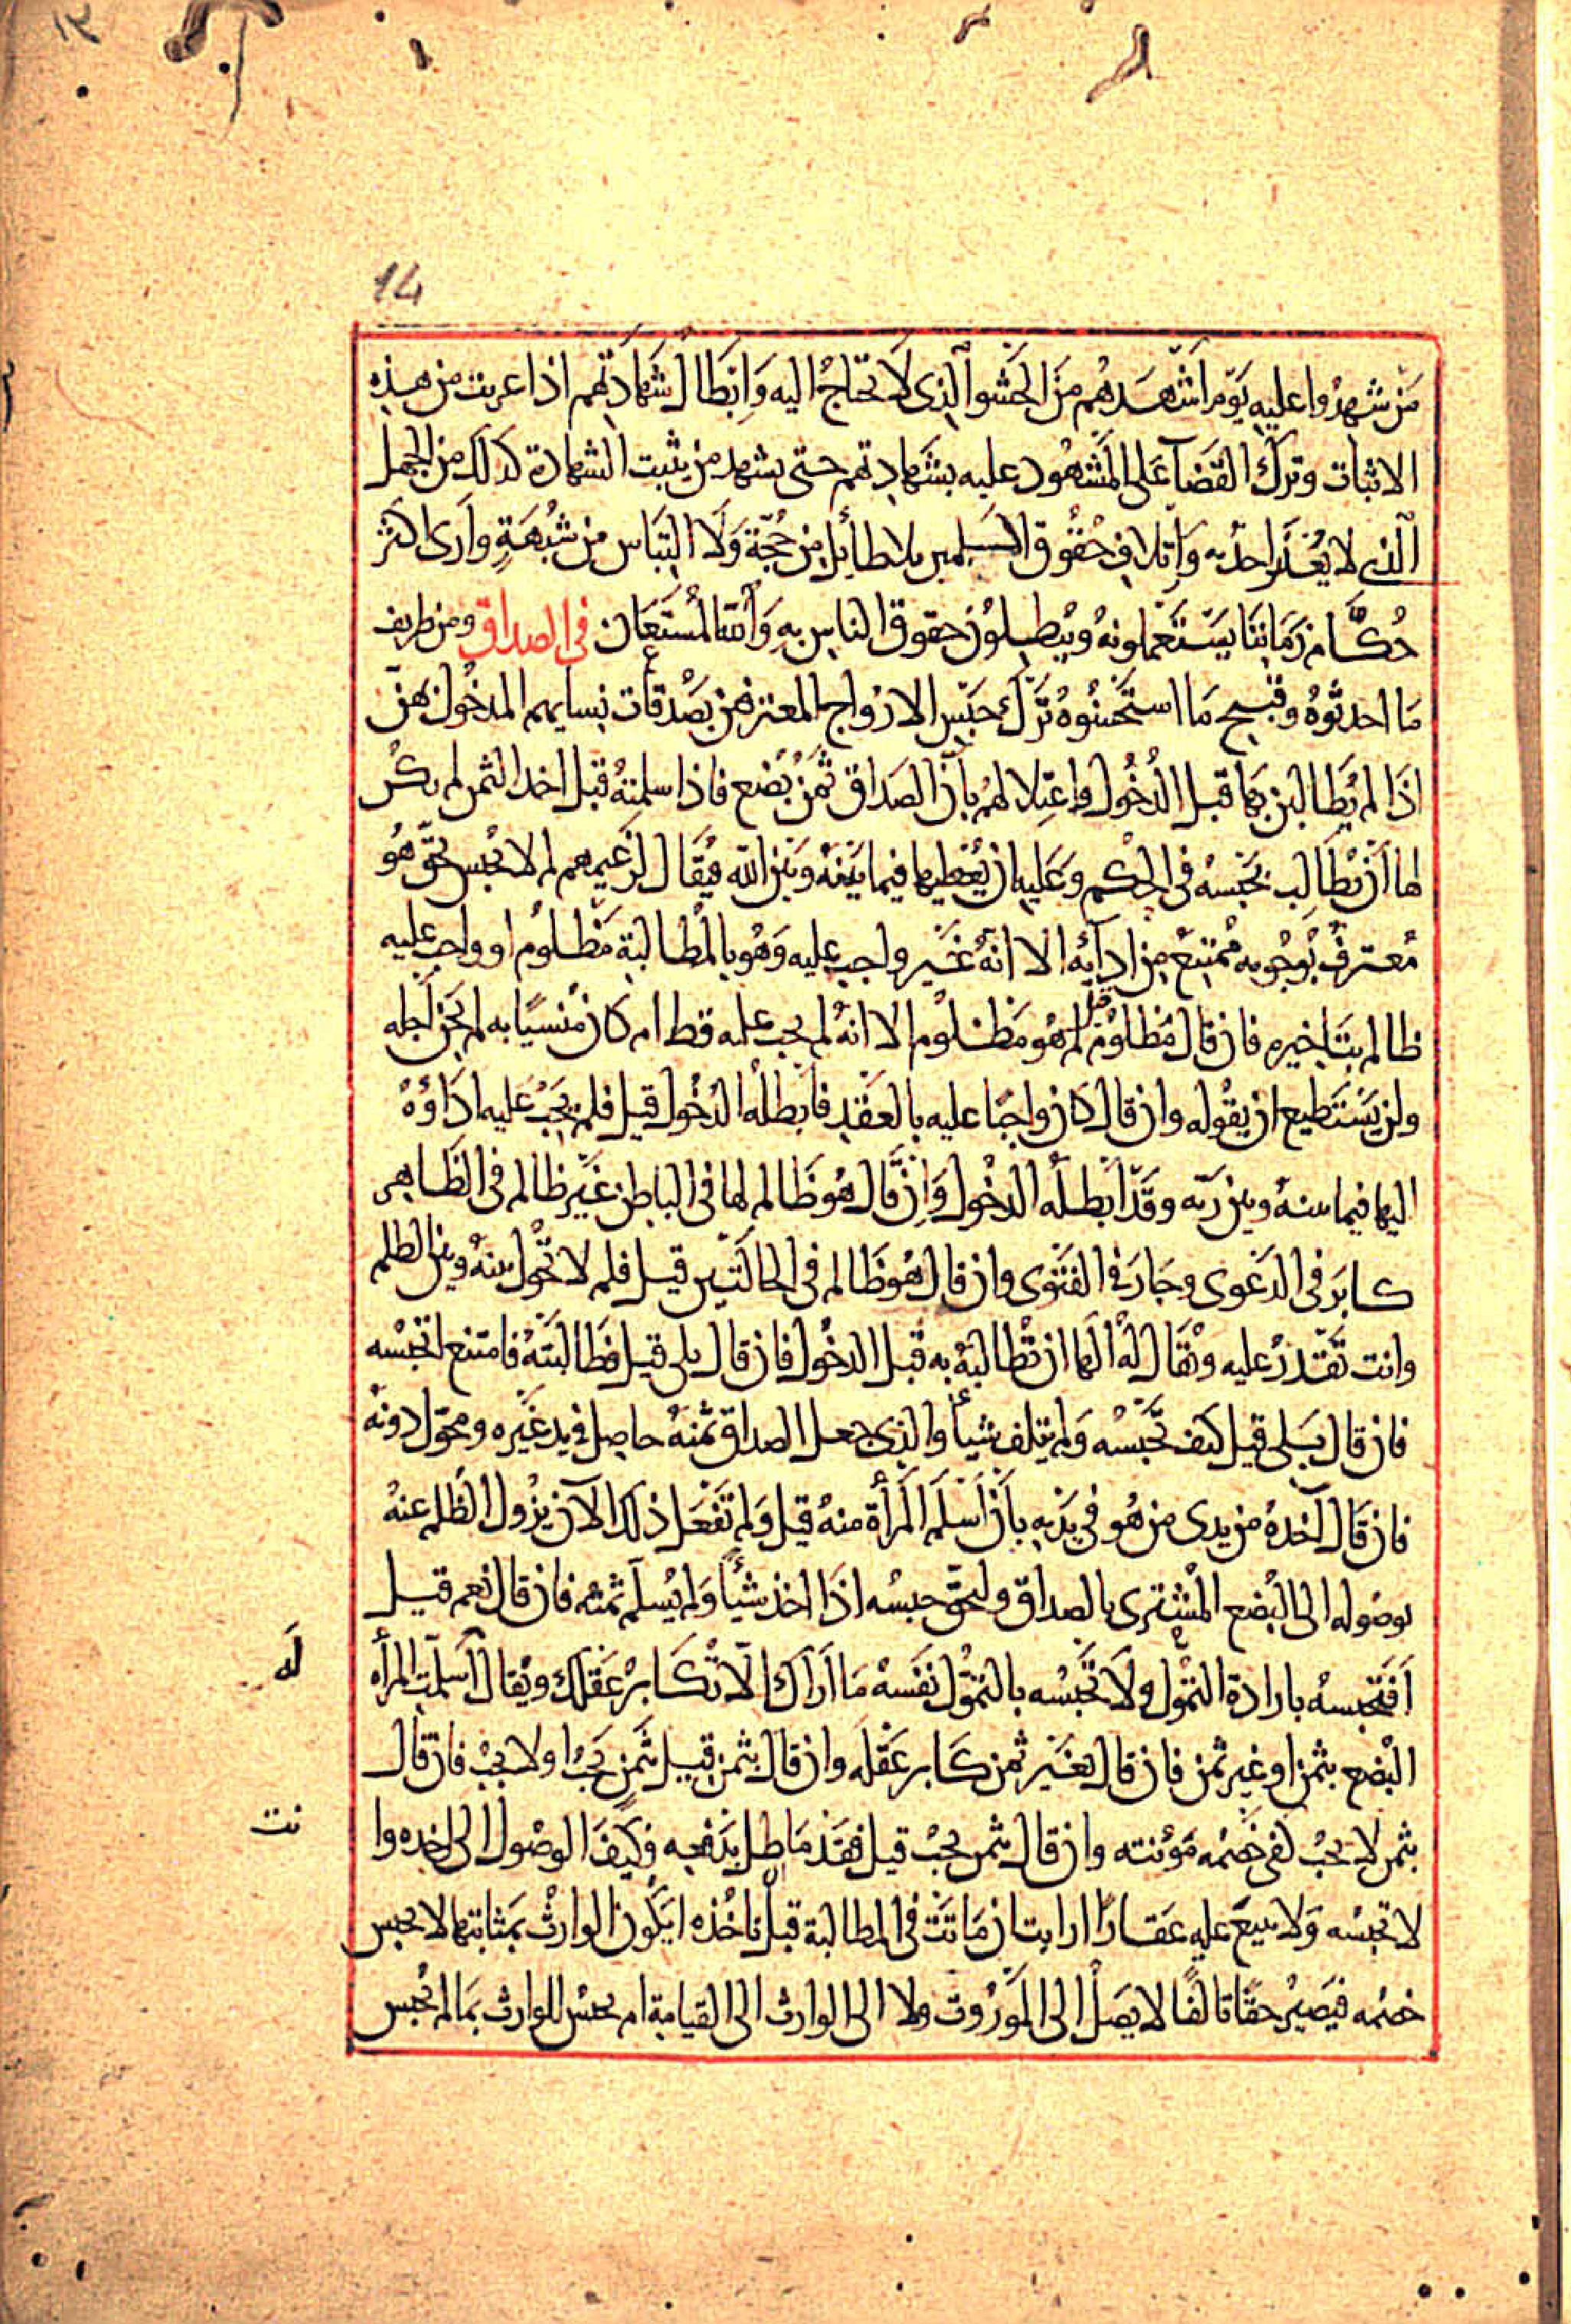 14
من شهدوا عليه يوم اشهدهم من الحشو الذى لا تحتاج اليه وابطال شهادتهم اذا عريت من هذه
الاثبات وترك القضآ على المشهود عليه بشهادتهم حتى يشهد من يثبت الشهادة كذلك من الجهل
الذى لا يعذر احد به واتلاف حقوق المسلمين بلا طائل من حجة ولا التباس من شبهة وارى اكثر
حكام زماننا يستعملونه ويبطلون حقوق الناس به والله المستعان فى الصداق ومن طريف
ما احدثوه وقبيح ما استحسنوه ترك حبس الازواج المعترفين بصدقات نسايهم المدخول بهن
اذا لم يطالبن بها قبل الدخول واعتلالهم بان الصداق ثمن بضع فاذا سلمته قبل اخذ الثمن لم يكن
لها ان تطالب بحبسه فى الحكم وعليه ان يعطيها فيما بينه وبين الله فيقال لزعيمهم لم لا تحبس بحق هو
معترف بوجوبه ممتنع من ادآئه الا انه غير واجب عليه وهو بالمطالبة مظلوم او واجب عليه
ظالم بتاخيره فان قال مظلوم قيل لم هو مظلوم الا انه لم يجب عليه قط ام كان منسيا به لم يحن اجله
ولن يستطيع ان يقوله وان قال كان واجبا عليه بالعقد فابطله الدخول قيل فلم يجب عليه اداؤه
اليها فيما بينه وبين ربه وقد ابطله الدخول وان قال هو ظالم لها فى الباطن غير ظالم فى الظاهر
كابر فى الدعوى وجار فى الفتوى وان قال هو ظالم فى الحالتين قيل فلم لا تحول بينه وبين الظلم
وانت تقدر عليه ويقال له الها ان تطالبه به قبل الدخول فان قال بلى قيل فطالبته فامتنع اتحبسه
فان قال بلى قيل كيف تحبسه ولم يتلف شيأ والذى جعل الصداق ثمنه حاصل فى يد غيره ومحول دونه
فان قال آخذه من يدى من هو فى يديه بان اسلم المرأة منه قيل ولم تفعل ذلك الآن يزول الظلم عنه
بوصوله الى البضع المشترى بالصداق ولحق حبسه اذا اخذ شيئا ولم يسلم ثمنه فان قال نعم قيل
افتحبسه بارادة التمول ولا تحبسه بالتمول نفسه ما اراك الا تكابر عقلك ويقال اسلمت المرأه
له
البضع بثمن او غير ثمن فان قال بغير ثمن كابر عقله وان قال بثمن قيل بثمن يجب او لا يجب فان قال
بثمن لا يجب لفى خصمه مؤنته وان قال بثمن يجب قيل فقد ماطل بدفعه وكيف الوصول الى اخذه وا
نت
لا تحبسه ولا تبيع عليه عقارا ارايت ان ماتت فى المطالبة قبل تاخذه ايكون الوارث بمثابتها لا يحبس
خصمه فيصير حقا تالفا لا يصل الى الموروث ولا الى الوارث الى القيامة ام يحبس للوارث بما لم تحبس